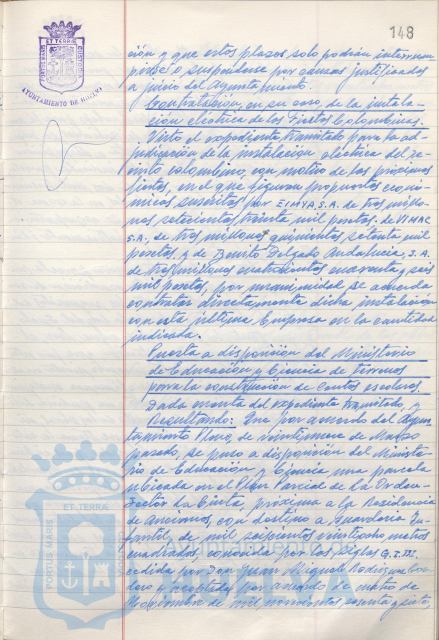 148
PORTUS MARIS ET TERRÆ CUSTODIA
AYUNTAMIENTO DE HUELVA
ción y que estos plazos solo podrán interrum
pirse o suspenderse por causas justificadas
a juicio del Ayuntamiento.
Contratación, en su caso, de la instala-
ción eléctrica de las Fiestas Colombinas.
Visto el expediente tramitado para la ad-
judicación de la instalación eléctrica del Re-
cinto colombino, con motivo de las próximas
fiestas, en el que figuran propuestas econó-
micas suscritas por EIMYA, S.A. de tres millo-
nes setecientas treinta mil pesetas, de VIMAC
S.A., de tres millones quinientas setenta mil
pesetas y de Benito Delgado Andalucía, S.A.
de tres millones cuatrocientas cuarenta y seis
mil pesetas, por unanimidad se acuerda
contratar directamente dicha instalación
con esta última Empresa en la cantidad
indicada.
Puesta a disposición del Ministerio
de Educación y Ciencia de terrenos
para la construcción de centros escolares.
Dada cuenta del expediente tramitado, y
Resultando: Que por acuerdo del Ayun-
tamiento Pleno, de veintinueve de Marzo
pasado, se puso a disposición del Ministe-
rio de Educación y Ciencia una parcela
ubicada en el Plan Parcial de la Orden
Sector La Cinta, próxima a la Residencia
de Ancianos, con destino a Guardería In-
fantil, de mil seiscientos veintiocho metros
cuadrados, conocida por las siglas G.I.
cedida por Don Juan Miguel Rodríguez
y aceptada por acuerdo de
Noviembre de mil novecientos setenta y siete,
PORTUS MARIS ET TERRA